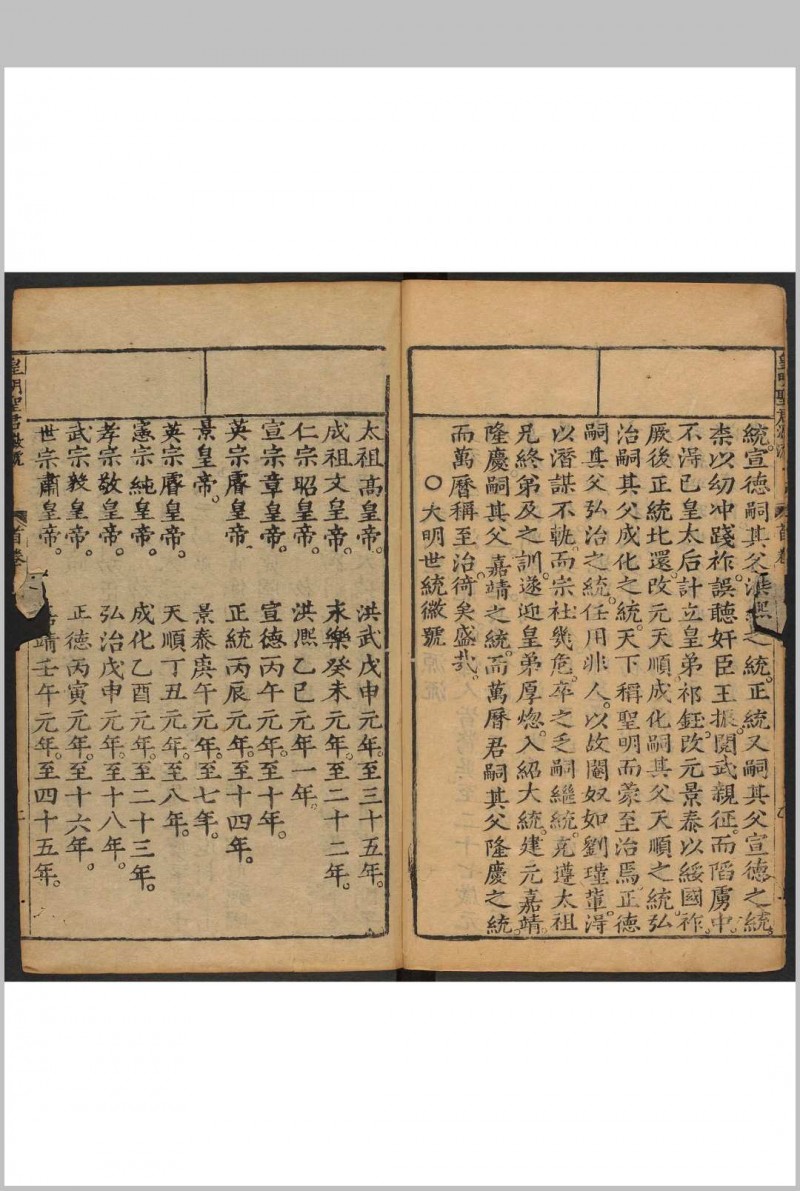 統。宣德嗣其父洪熙之統。正統又嗣其父宣德之統。
柰以幼冲踐祚。誤聽奸臣王振。閱武親征。而陷虜中。
不淂已皇太后計立皇弟。祁鈺改元景泰以綏國祚。
厥後正統北還改元天順成化嗣其父天順之統。弘
治嗣其父成化之統。天下稱聖明而蒙至治焉。正德
嗣其父弘治之統。任用非人。以故閹奴如劉瑾軰淂
以潛謀不軌。而宗社幾危。卒之乏嗣繼統。克遵太祖
兄終弟及之訓。遂迎皇弟厚熜。入紹大統。建元嘉靖。
隆慶嗣其父嘉靖之統。而萬曆君嗣其父隆慶之統。
而萬曆稱至治。猗矣盛哉。
○大明世統徽號
太祖高皇帝。 洪武戊申元年。至三十五年。
成祖文皇帝。 永樂癸未元年。至二十二年。
仁宗昭皇帝。 洪熙乙巳元年一年。
宣宗章皇帝。 宣德丙午元年。至十年。
英宗睿皇帝 正統丙辰元年。至十四年。
景皇帝。 景泰庚午元年。至七年。
英宗睿皇帝。 天順丁丑元年。至八年。
憲宗純皇帝。 成化乙酉元年。至二十三年。
孝宗敬皇帝。 弘治戊申元年。至十八年。
武宗毅皇帝。 正德丙寅元年。至十六年。
世宗肅皇帝。 靖壬午元年。至四十五年。
皇明聖君徽號 首卷